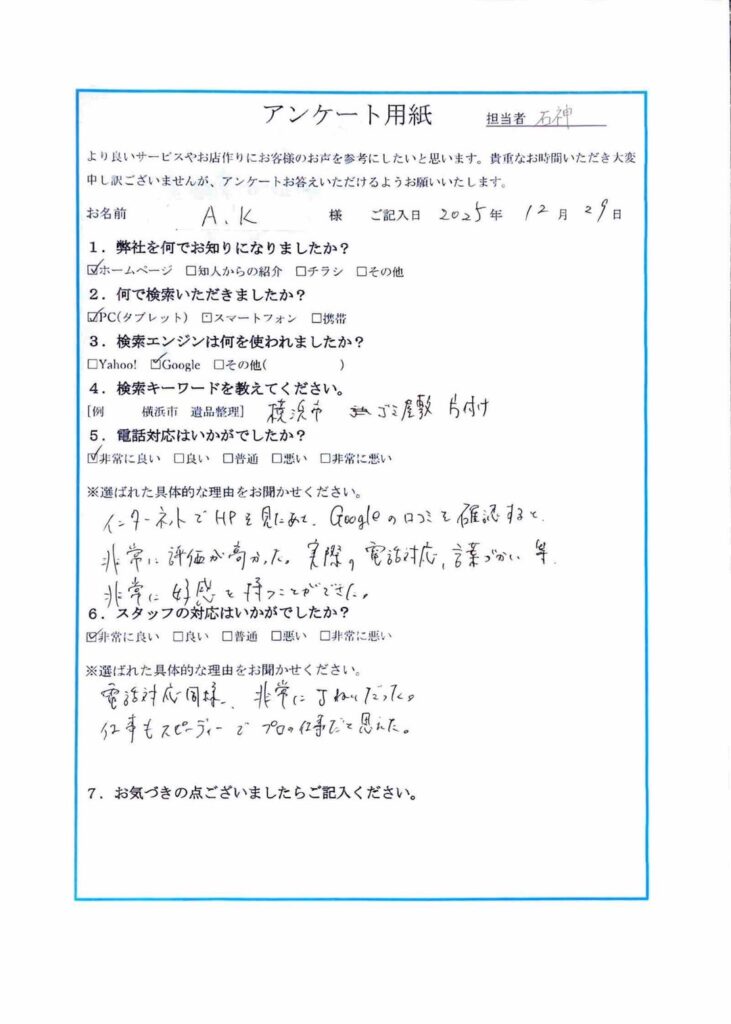 アンケート用紙
担当者 石神
より良いサービスやお店作りにお客様のお声を参考にしたいと思います。貴重なお時間いただき大変
申し訳ございませんが、アンケートお答えいただけるようお願いいたします。
お名前 A.K 様 ご記入日 2025年 12月 29日
1．弊社を何でお知りになりましたか？
☑ホームページ □知人からの紹介 □チラシ □その他
2．何で検索いただきましたか？
☑PC(タブレット) □スマートフォン □携帯
3．検索エンジンは何を使われましたか？
□Yahoo! ☑Google □その他( )
4．検索キーワードを教えてください。
[例 横浜市 遺品整理]横浜市 ゴミ屋敷 片付け
5．電話対応はいかがでしたか？
☑非常に良い □良い □普通 □悪い □非常に悪い
※選ばれた具体的な理由をお聞かせください。
インターネットでHPを見たあと、Googleの口コミを確認すると、
非常に評価が高かった。実際の電話対応、言葉づかい等
非常に好感を持つことができた。
6．スタッフの対応はいかがでしたか？
☑非常に良い □良い □普通 □悪い □非常に悪い
※選ばれた具体的な理由をお聞かせください。
電話対応同様、非常にていねいだった。
仕事もスピーディーでプロの仕事だと思えた。
7．お気づきの点ございましたらご記入ください。